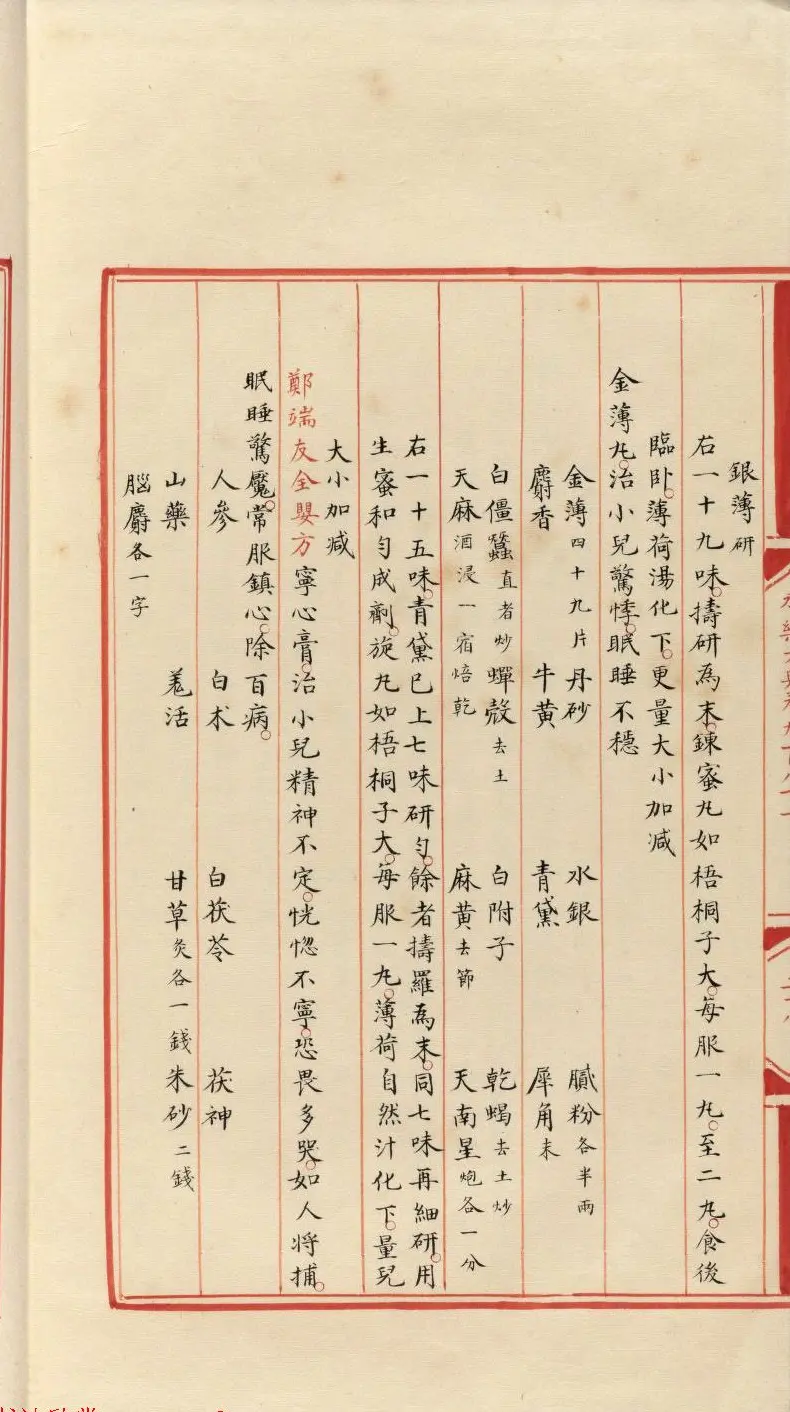 銀薄研
右一十九味。擣研為末。鍊蜜丸如梧桐子大。每服一丸。至二丸。食後
臨卧。薄荷湯化下。更量大小加減
金薄丸。治小兒驚悸。眠睡不穩
金薄四十九片 丹砂 水銀 膩粉各半兩
麝香 牛黃 青黛 犀角末
白僵蠶直者炒 蟬殼去土 白附子 乾蝎去土炒
天麻酒浸一宿焙乾 麻黃去節 天南星炮各一分
右一十五味。青黛已上七味研勻。餘者擣羅為末。同七味再細研。用
生蜜和勻成劑。旋丸如梧桐子大。每服一丸。薄荷自然汁化下。量兒
大小加減
鄭端友全嬰方寧心膏。治小兒精神不定。恍惚不寧。恐畏多哭。如人將捕。
眠睡驚魘。常服鎮心。除百病。
人參 白朮 白茯苓 茯神
山藥 羌活 甘草炙各一錢 朱砂二錢
腦麝各一字